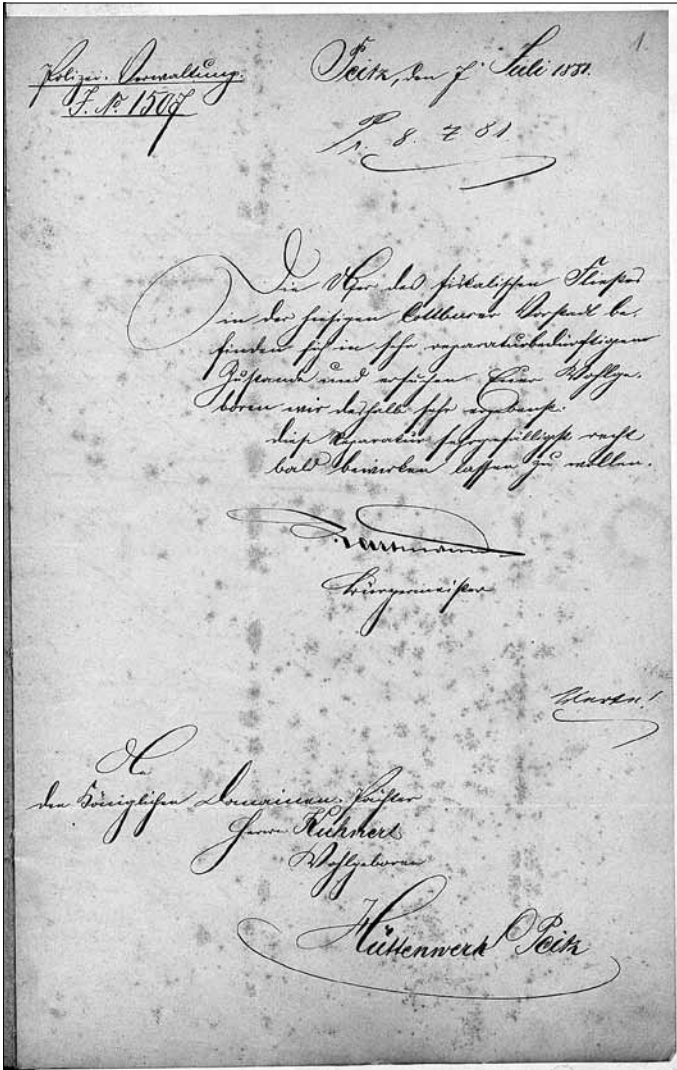 1.
Polizei-Verwaltung.
J. No 1507
Peitz, den 7. Juli 1881.
Pr. 8. 7 81.
Die Ufer des fiskalischen Fließes
in der hiesigen Cottbuser Vorstadt be-
finden sich in sehr reparaturbedürftigem
Zustande und ersuchen Euer Wohlge-
boren wir deshalb sehr ergebenst:
diese Reparatur sehr gefälligst recht
bald bewirken lassen zu wollen.
Bürgermeister
An
den Königlichen Domainen-Pächter
Herrn Kuhnert
Wohlgeboren
Hüttenwerk Peitz